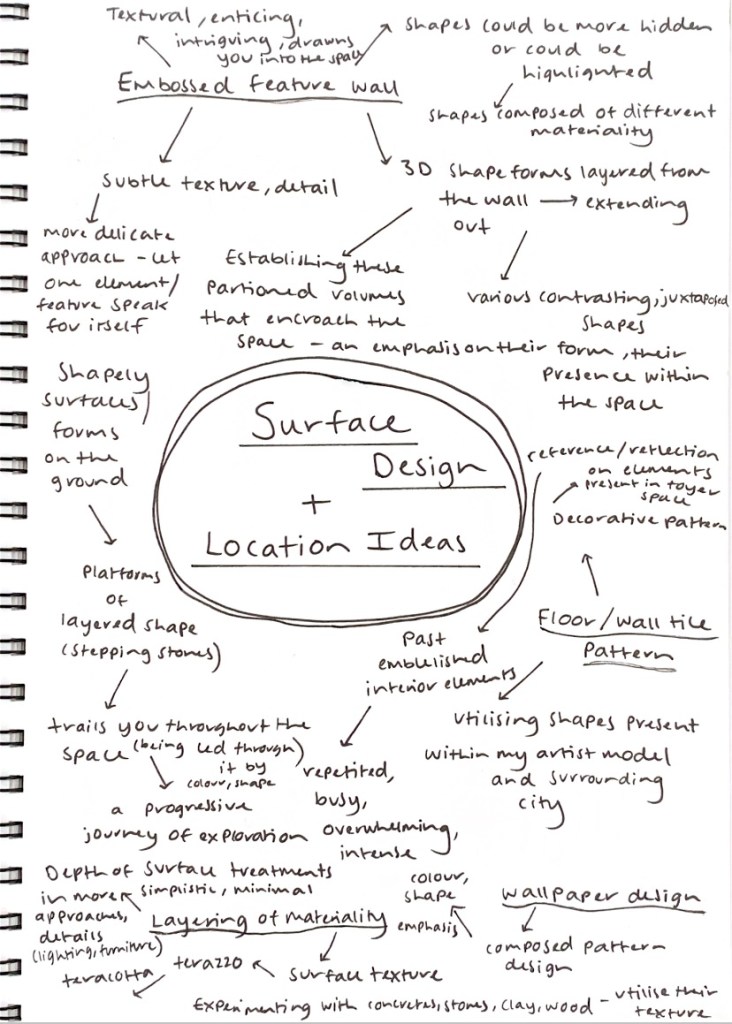 Textural, enticing,
intriguing, drawns
you into the space
Embossed feature wall
shapes could be more hidden
or could be
highlighted
shapes composed of different
materiality
subtle texture, detail
more delicate
approach - let
one element/
feature speak
for itself
3D shape forms layered from
the wall → extending
out
Establishing these
partioned volumes
that encroach the
space - an emphasis on their form, their
presence within
the space
various contrasting, juxtaposed
shapes
Shapely
surfaces/
forms
on the
ground
Platforms
of
layered shape
(stepping stones)
trails you throughout the
space (being led through)
it by
colour, shape
a progressive
journey of exploration
Surface
Design
+
Location Ideas
reference/reflection
on elements
present in foyer
space
Decorative pattern
Floor/wall tile
pattern
Past
embellished
interior elements
repetited,
busy,
overwhelming,
intense
utilising shapes present
within my artist model
and surrounding
city
Depth of surface treatments
in more simplistic, minimal
approaches,
details
(lighting, furniture)
Layering of materiality
surface texture
terazzo
teracotta
Experimenting with concretes, stones, clay, wood - utilise their
texture
wallpaper design
composed pattern
design
colour,
shape
emphasis